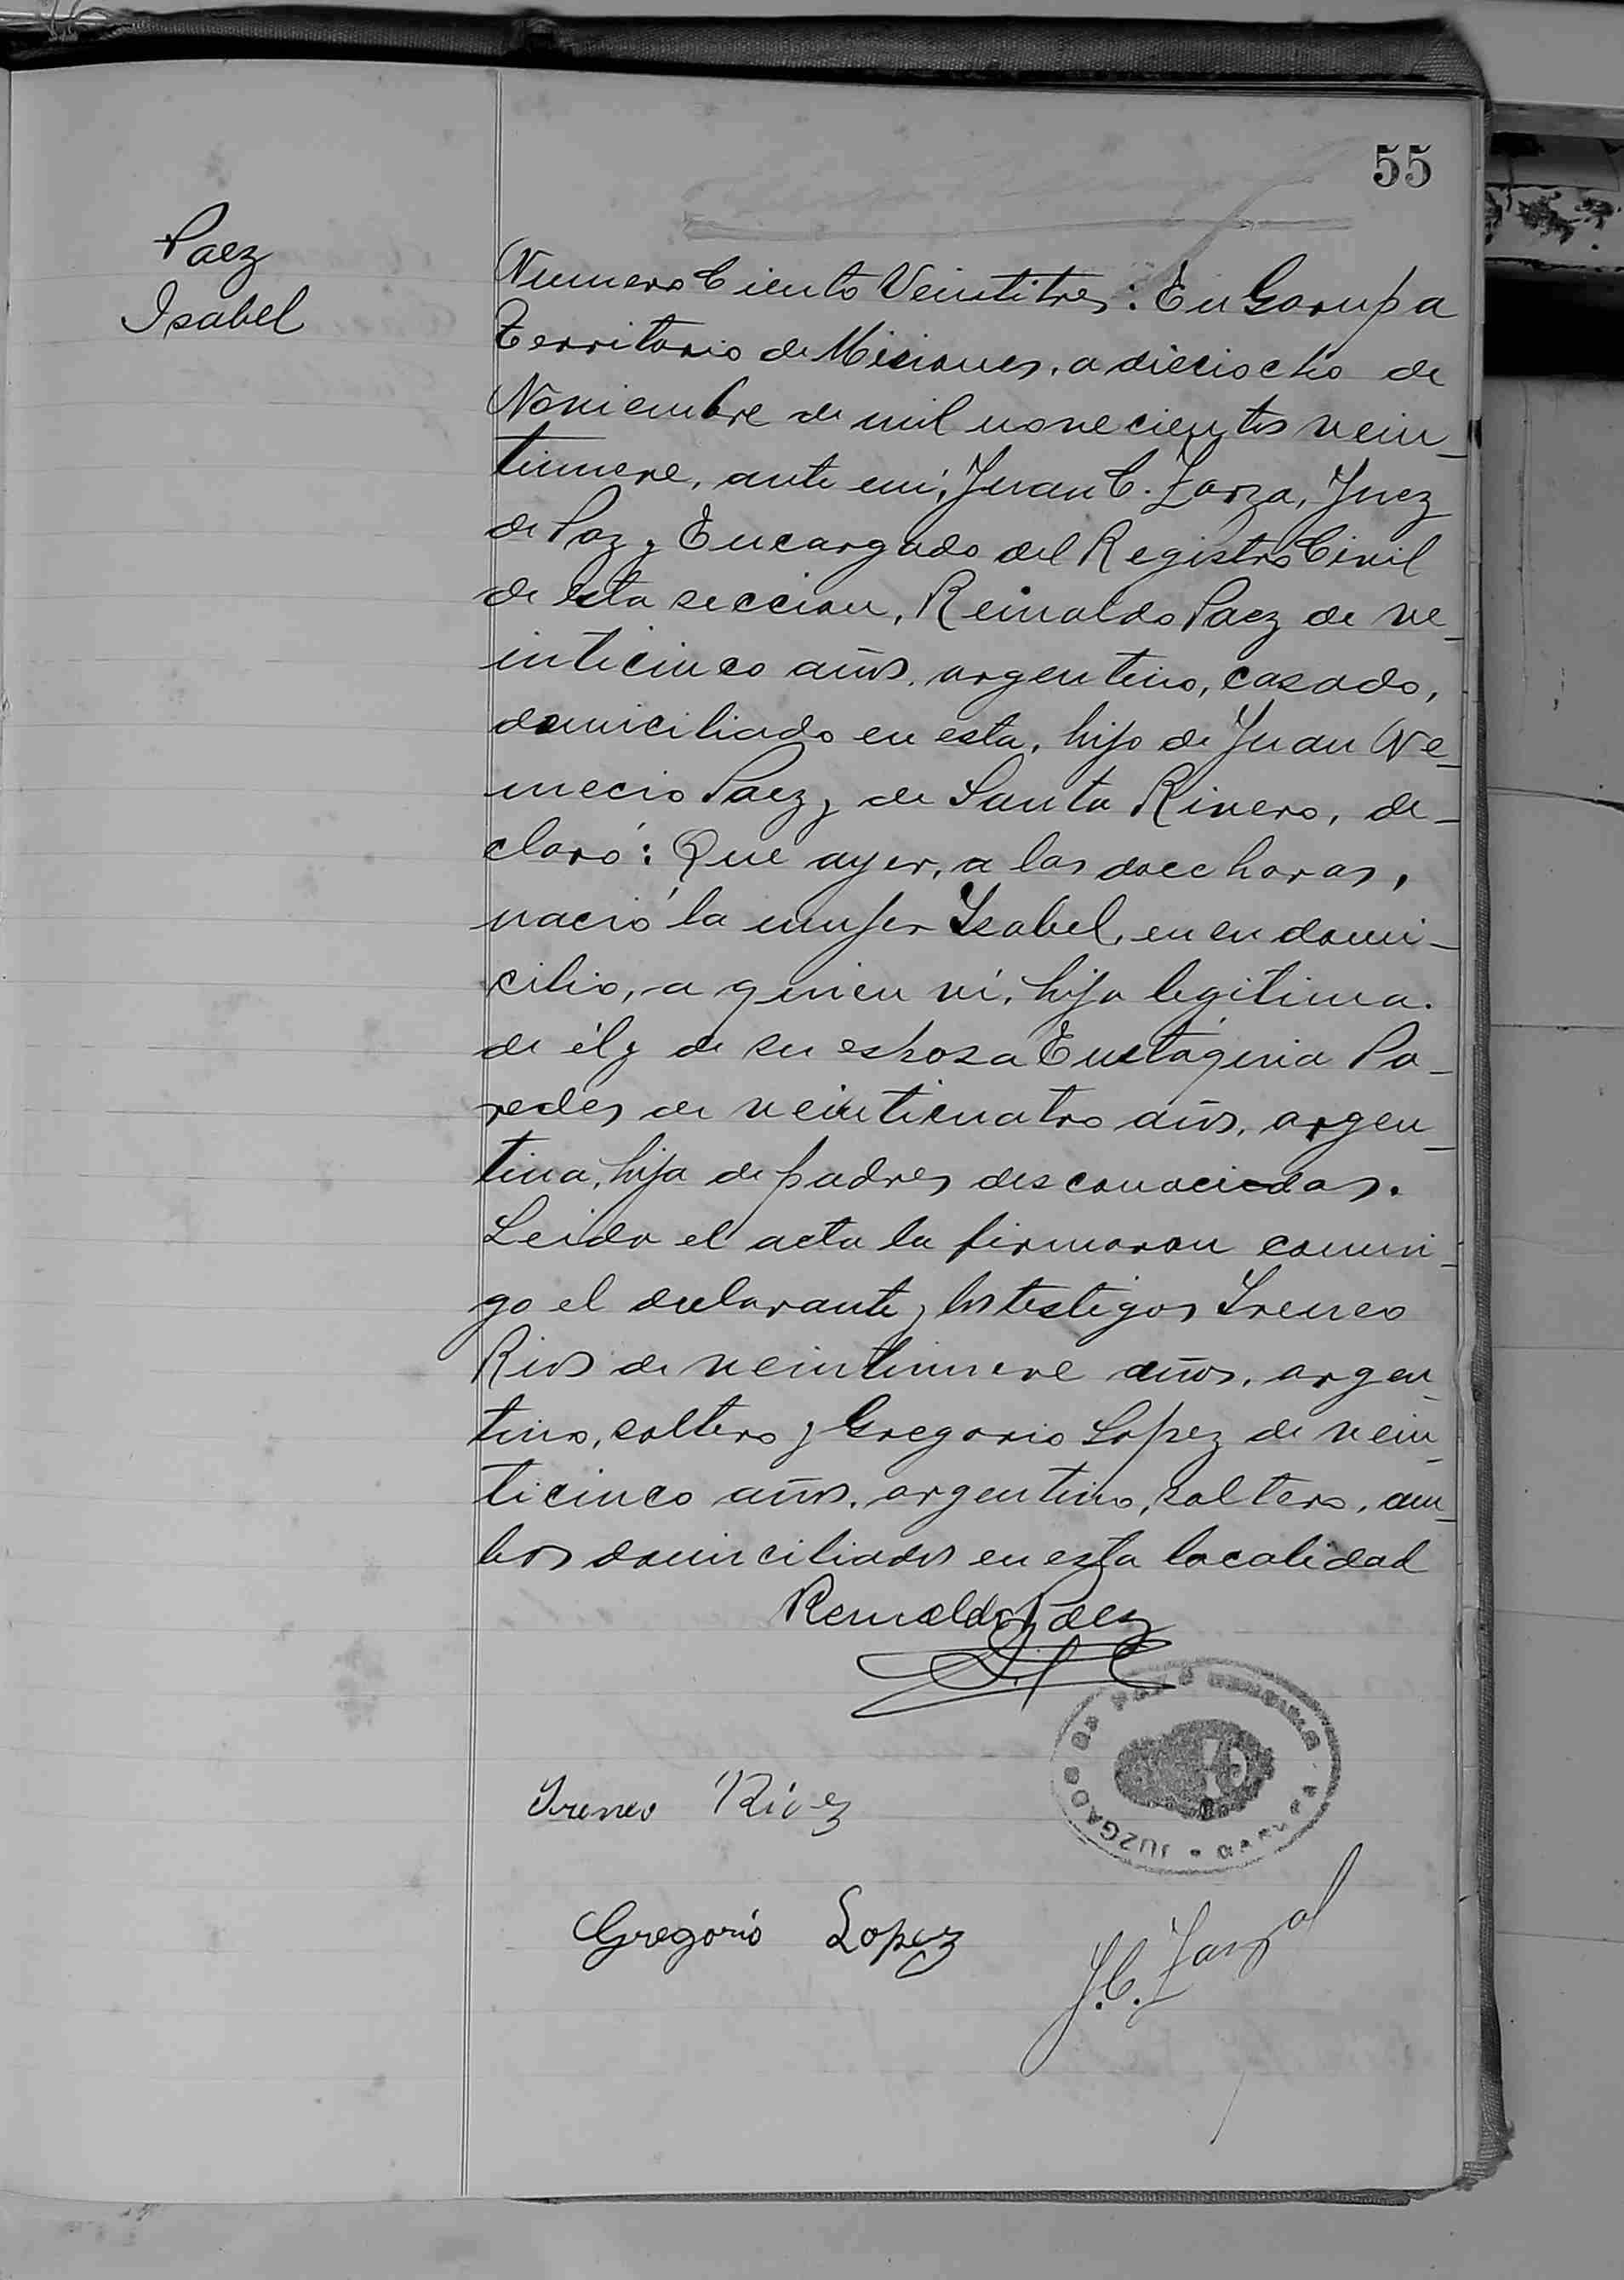 55
Paez
Isabel
Numero Ciento Veintitres: En Garupa
Territorio de Misiones, a dieciocho de
Noviembre de mil novecientos vein_
tinueve, ante mi, Juan C. Zarza, Juez
de Paz y Encargado del Registro Civil
de esta seccion, Reinaldo Paez de ve_
inticinco años, argentino, casado,
domiciliado en esta, hijo de Juan Ne_
mecio Paez y de Santa Rivero, de_
claró: Que ayer, a las doce horas,
nació la mujer Isabel, en su domi_
cilio, a quien vi, hija legitima.
de él y de su esposa Eustaquia Pa_
redes de veinticuatro años, argen_
tina, hija de padres desconocidos.
Leida el acta la firmaron conmi_
go el declarante y los testigos Ireneo
Rios de veintinueve años, argen_
tino, soltero y Gregorio Lopez de vein_
ticinco años, argentino, soltero, am_
bos domiciliados en esta localidad
Reinaldo Paez
JUZGADO DE PAZ
Ireneo Rioz
Gregorio Lopez
J. C. Zarza